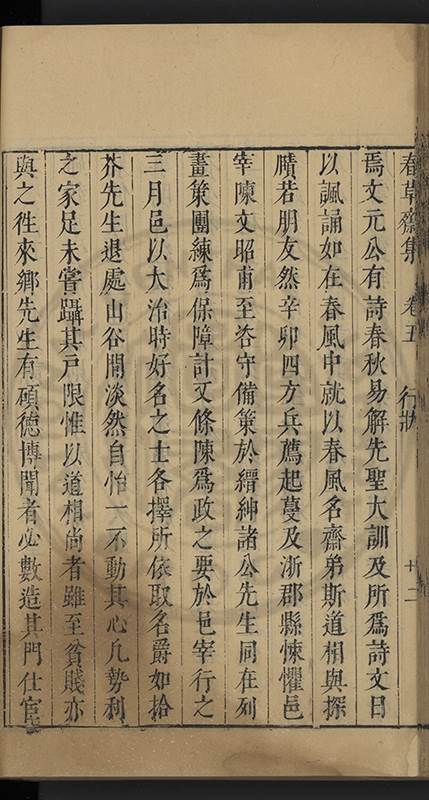 春草齋集 卷五 行狀 十二
焉文元公有詩春秋易解先聖大訓及所爲詩文日
以諷誦如在春風中就以春風名齋弟斯道相與探
賾若朋友然辛卯四方兵薦起蔓及浙郡縣悚懼邑
宰陳文昭甫至咨守備策於縉紳諸公先生同在列
畫策團練爲保障計又條陳爲政之要於邑宰行之
三月邑以大治時好名之士各擇所依取名爵如拾
芥先生退處山谷閒淡然自怡一不動其心凡勢利
之家足未嘗躡其戸限惟以道相尚者雖至貧賤亦
與之徃來鄉先生有碩德博聞者必數造其門仕宦